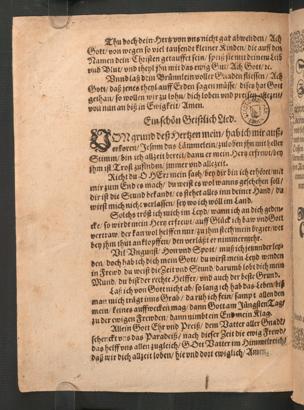 Thu doch dein Hertz von uns nicht gar abwenden/ Ach
Gott/ von wegen so viel tausende kleiner Kinder/ die auff den
Namen dein Christen getauffet sein/ speiß sie mit deinem Leib
und Blut/ und theyl jhn mit das ewig Gut/ Ach Gott/ etc.
Und laß dein Brünnlein voller Gnaden fliessen/ Ach
Gott/ daß jenes theyl auff Erden sagen müsse/ diß er hat Gott
gethan/ so wollen wir dich loben und preisen allezeit/
von nun an biß in Ewigkeit/ Amen.
Ein schön Geistlich Lied.
VON grund deß Hertzen mein/ hab ich mir auß-
erkoren/ Jesum das Lämmelein/ zu loben jhn mit heller
Stimm/ bin ich allzeit bereit/ dann er mein Hertz erfreut/ bey
jhm ist Trost zufinden/ immer und allezeit.
Richt du O HErr mein sach/ bey dir bin ich erhöret/ mit
mir zum End es mach/ du weist es wol wanns geschehen soll/
dir ist die Stund bekandt/ es stehet alles inn deiner Hand/ du
wirst mich nicht verlassen/ sey wo ich wöll im Land.
Solchs tröst ich mich im Leyd/ wann ich an dich gedenc-
ke/ so wird mein Hertz erfreut/ auff Glück ich hab und Gott
vertraw/ der kan wol helffen nur/ zu jhm steck mein begier/ wer
bey jhm thut anklopffen/ den verläßt er nimmermehr.
Mit Ungunst/ Hon und Spott/ muß ich jetzunder ley-
den/ doch hab ich dich mein Gott/ du wirst mein Leyd wenden
in Frewd/ du weist die Zeit und Stund/ darumb lobt dich mein
Mund/ du bist der rechte Helffer/ und auch der feste Grund.
Laß ich von Gott nicht ab/ so lang ich hab das Leben/ biß
man mich trägt inns Grab/ da ruh ich fein/ sampt allen den
mein/ keines aufferwecken mag/ dann Gott am Jüngsten Tag/
zu der ewigen Frewden/ dann nimbt ein End mein Klag.
Allein Gott Ehr und Preiß/ dem Vatter aller Gnade/
das Paradeiß/ nach dieser Zeit die ewig Frewd/
das helff uns allen zugleich/ Gott Vatter im Himmelreich/
daß wir dich allzeit loben/ hie und dort ewiglich/ Amen.